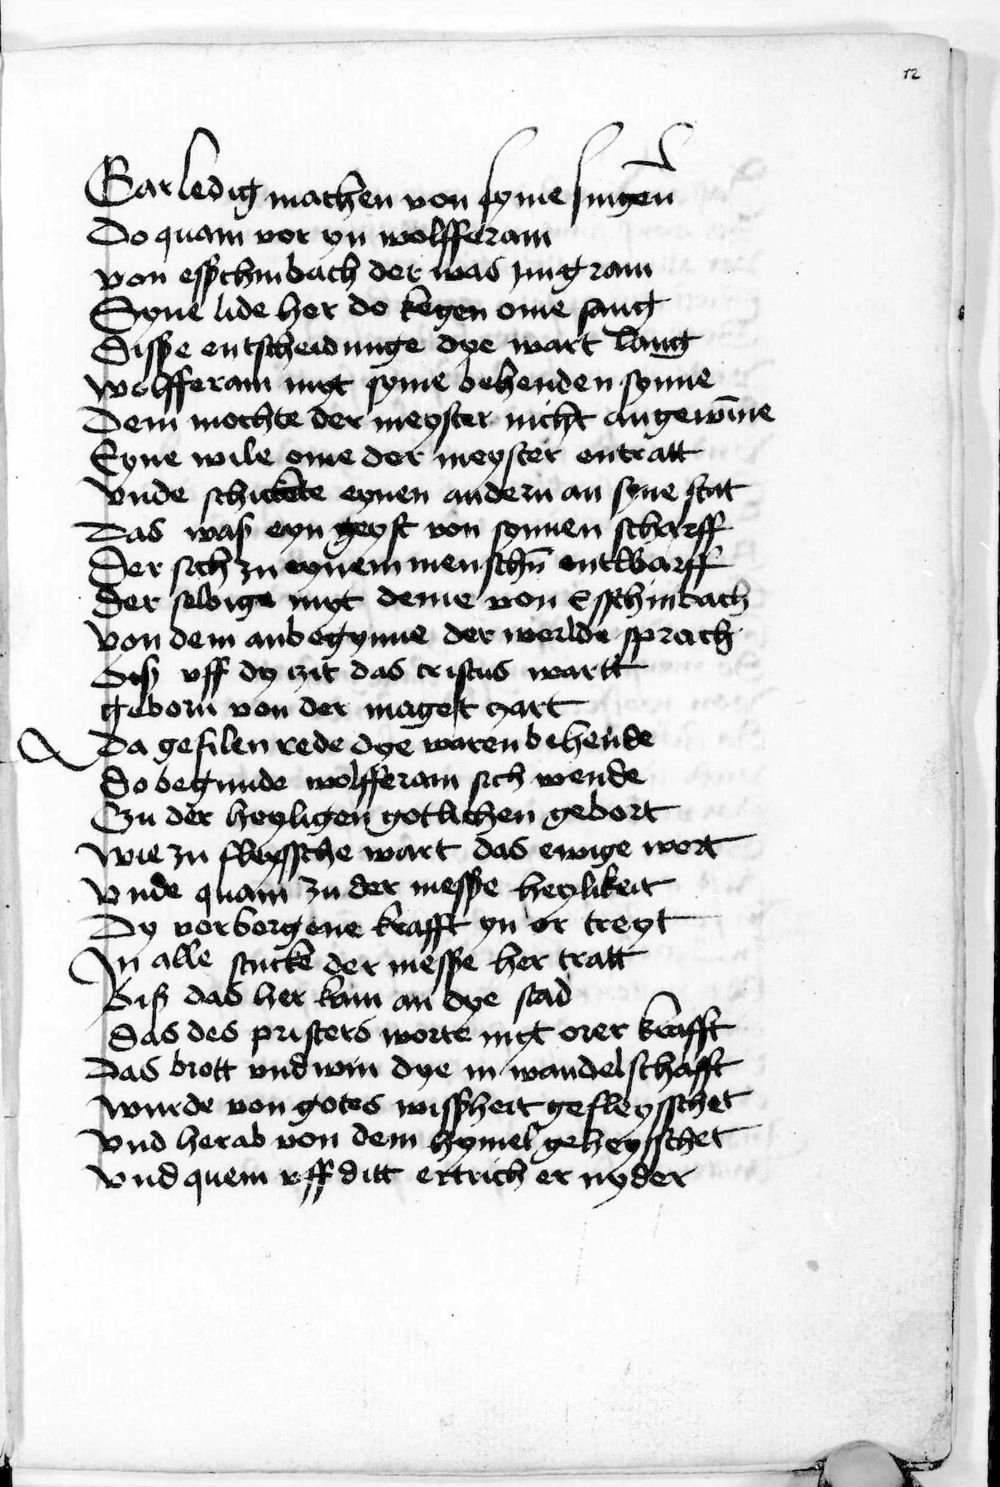 12
Gar ledig machen von syme singen
Do quam vor yn wolfferam
von esschinbach der was jungram
Syne lide her do kegen ome sang
Disse entscheidunge dye wart lang
wolfferam myt syme behenden synne
Dem mochte der meyster nicht angewīne
Eyne wile ome der meyster entratt
Vnde schickete eynen andern an syne stat
Das waß eyn geyst von synnen scharff
Der sich zu eynem menschn̄ entwarff
Der selbige myt deme von Esschinbach
Von dem anbegynne der werlde sprach
Biß vff dy zit das cristus wartt
geborn von der maget zart
Da gefilen rede dye waren behende
Do begunde wolfferam sich wende
Zu der heyligen gotlichen gebort
Wie zu fleyssche wart das ewige wort
Vnde quam zu der messe heylikeit
Dy vorborgene krafft yn or treyt
In alle stucke der messe her tratt
Biß das her kam an dye stad
Das des pristers worte myt orer krafft
Das brott vnd win dye in wandelschafft
wurde von gotes wißheit gefleysschet
Vnd herab von dem hymel geheysschet
Vnd quem vff ditt ertrich er nyder